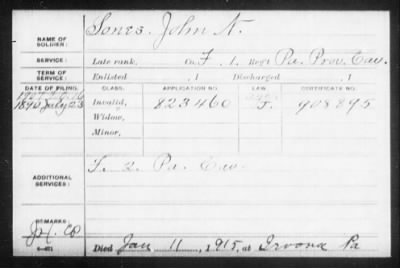 NAME OF SOLDIER: Sones, John A.
SERVICE: Late rank, Co. F, Reg't Pa. Prov. Cav.
TERM OF SERVICE: Enlisted , 1 Discharged , 1
DATE OF FILING. CLASS. APPLICATION NO. LAW. CERTIFICATE NO.
1890 July 23 Invalid, 823460 908895
Widow,
Minor,
ADDITIONAL SERVICES: F. 2 Pa. Cav.
REMARKS:
Died Jan 11, 1915, at Irvona Pa